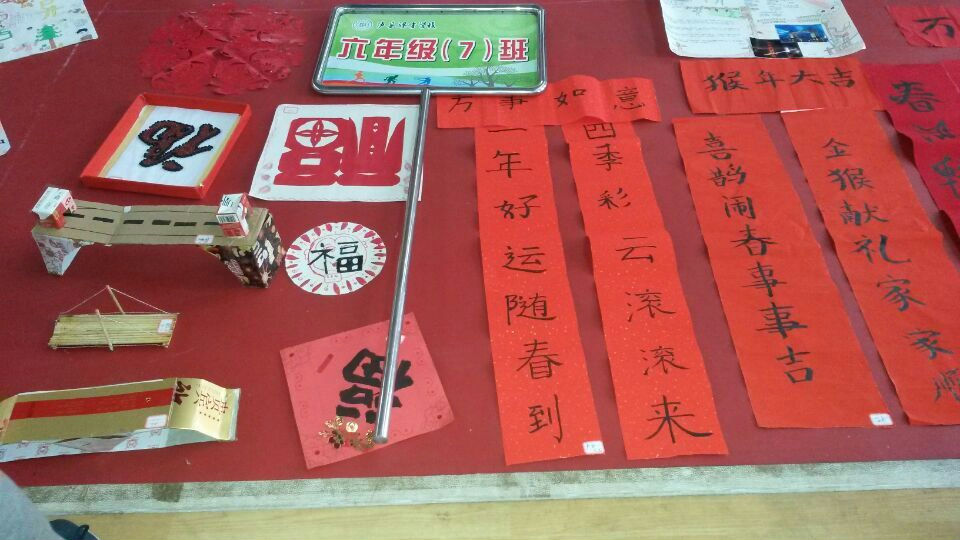 六年级(7)班
万事如意
一年好运随春到
四季彩云滚滚来
猴年大吉
喜鹊闹春事事吉
企猴献礼家家顺
福
福
福
福
万
春